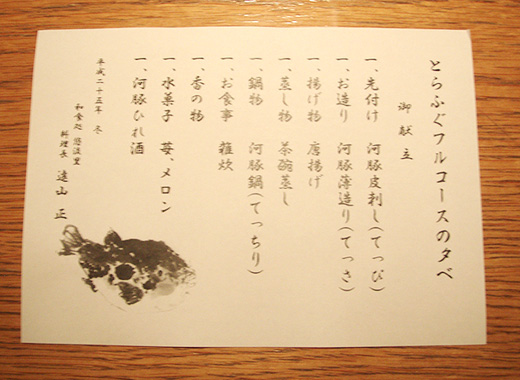 とらふぐフルコースの夕べ
御献立
一、先付け 河豚皮刺し(てっぴ)
一、お造り 河豚薄造り(てっさ)
一、揚げ物 唐揚げ
一、蒸し物 茶碗蒸し
一、鍋物 河豚鍋(てっちり)
一、お食事 雑炊
一、香の物
一、水菓子 苺、メロン
一、河豚ひれ酒
平成二十五年 冬
和食処 悠淡里
料理長 遠山 正